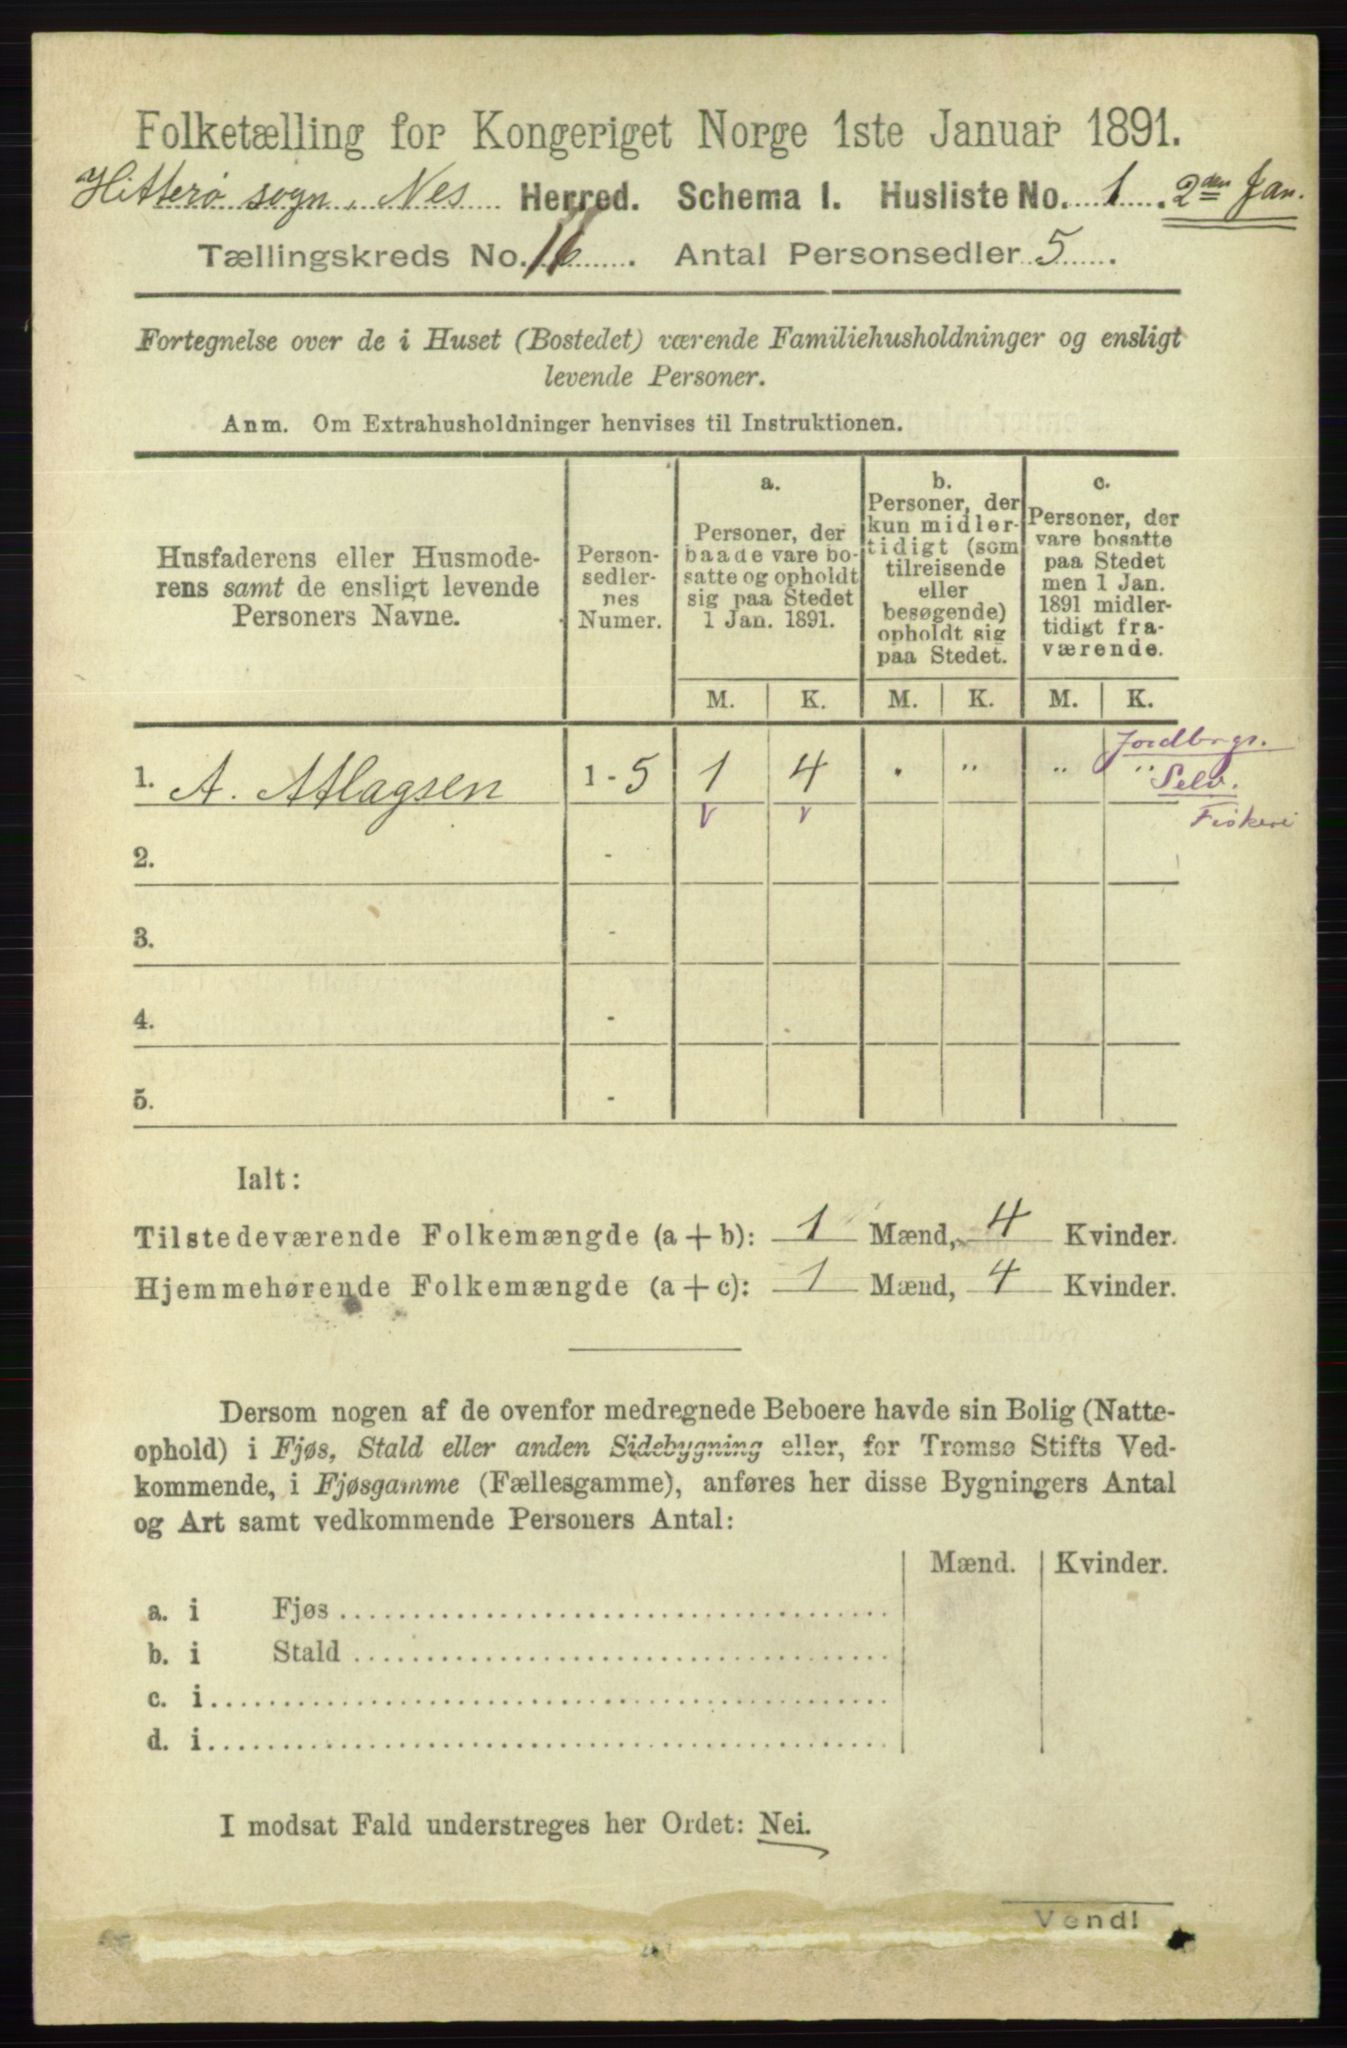 Folketælling for Kongeriget Norge 1ste Januar 1891.
Hitterø sogn, Nes Herred. Schema I. Husliste No. 1. 2den Jan.
Tællingskreds No. . Antal Personsedler 5.
Fortegnelse over de i Huset (Bostedet) værende Familiehusholdninger og ensligt
levende Personer.
Anm. Om Extrahusholdninger henvises til Instruktionen.
Husfaderens eller Husmode-
rens samt de ensligt levende
Personers Navne.
Person-
sedler-
nes
Numer.
a.
Personer, der
baade vare bo-
satte og opholdt
sig paa Stedet
1 Jan. 1891.
b.
Personer, der
kun midler-
tidigt (som
tilreisende
eller
besøgende)
opholdt sig
paa Stedet.
c.
Personer, der
vare bosatte
paa Stedet
men 1 Jan.
1891 midler-
tidigt fra-
værende.
M. K. M. K. M. K.
Jordbrgs.
1. A. Atlagsen 1 - 5 1 4 " " " "
Selv.
Fiskeri
2. -
3. -
4. -
5. -
Ialt:
Tilstedeværende Folkemængde (a + b): 1 Mænd, 4 Kvinder.
Hjemmehørende Folkemængde (a + c): 1 Mænd, 4 Kvinder.
Dersom nogen af de ovenfor medregnede Beboere havde sin Bolig (Natte-
ophold) i Fjøs, Stald eller anden Sidebygning eller, for Tromsø Stifts Ved-
kommende, i Fjøsgamme (Fællesgamme), anføres her disse Bygningers Antal
og Art samt vedkommende Personers Antal:
Mænd. Kvinder.
a. i Fjøs
b. i Stald
c. i
d. i
I modsat Fald understreges her Ordet: Nei.
Vend!